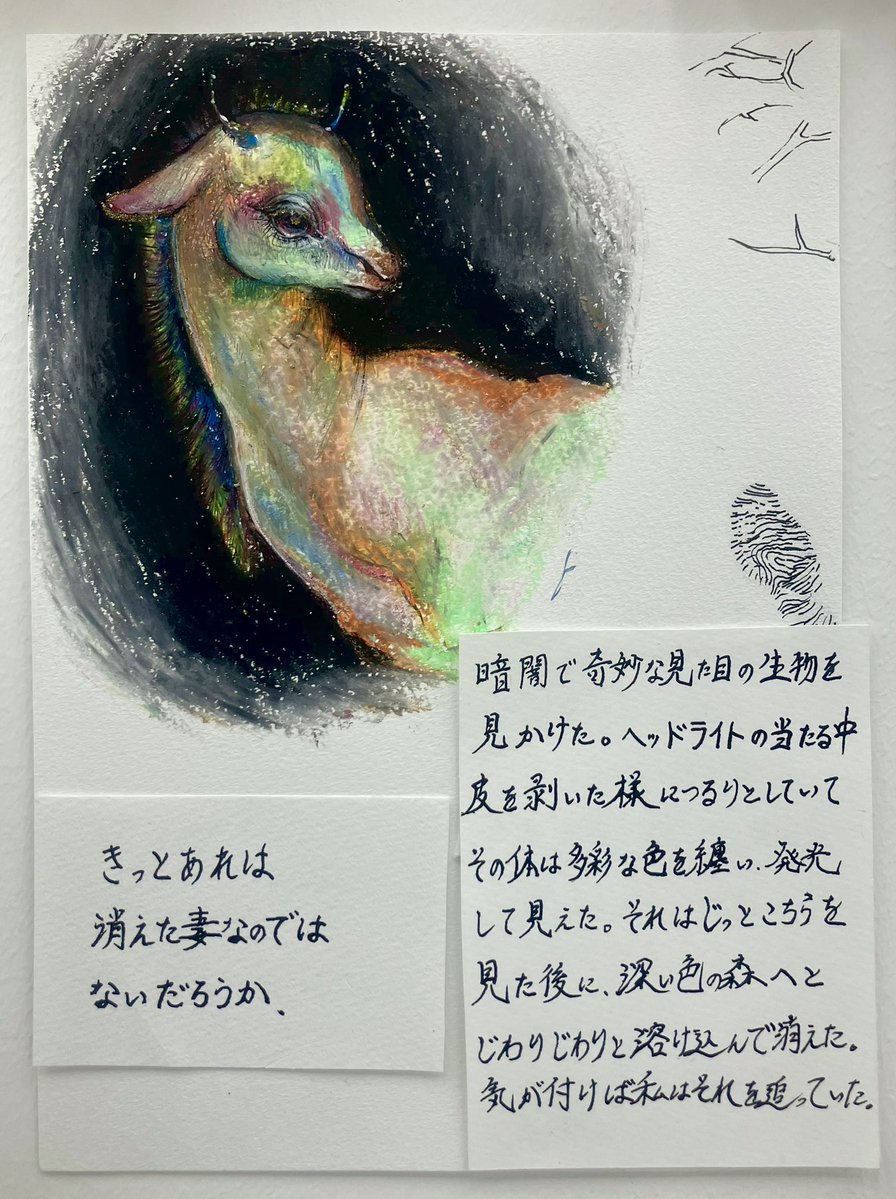 暗闇で奇妙な見た目の生物を
見かけた。ヘッドライトの当たる中
皮を剥いた様につるりとしていて
その体は多彩な色を纏い、発光
して見えた。それはじっとこちらを
見た後に、深い色の森へと
じわりじわりと溶け込んで消えた。
気が付けば私はそれを追っていた。
きっとあれは
消えた妻なのでは
ないだろうか、